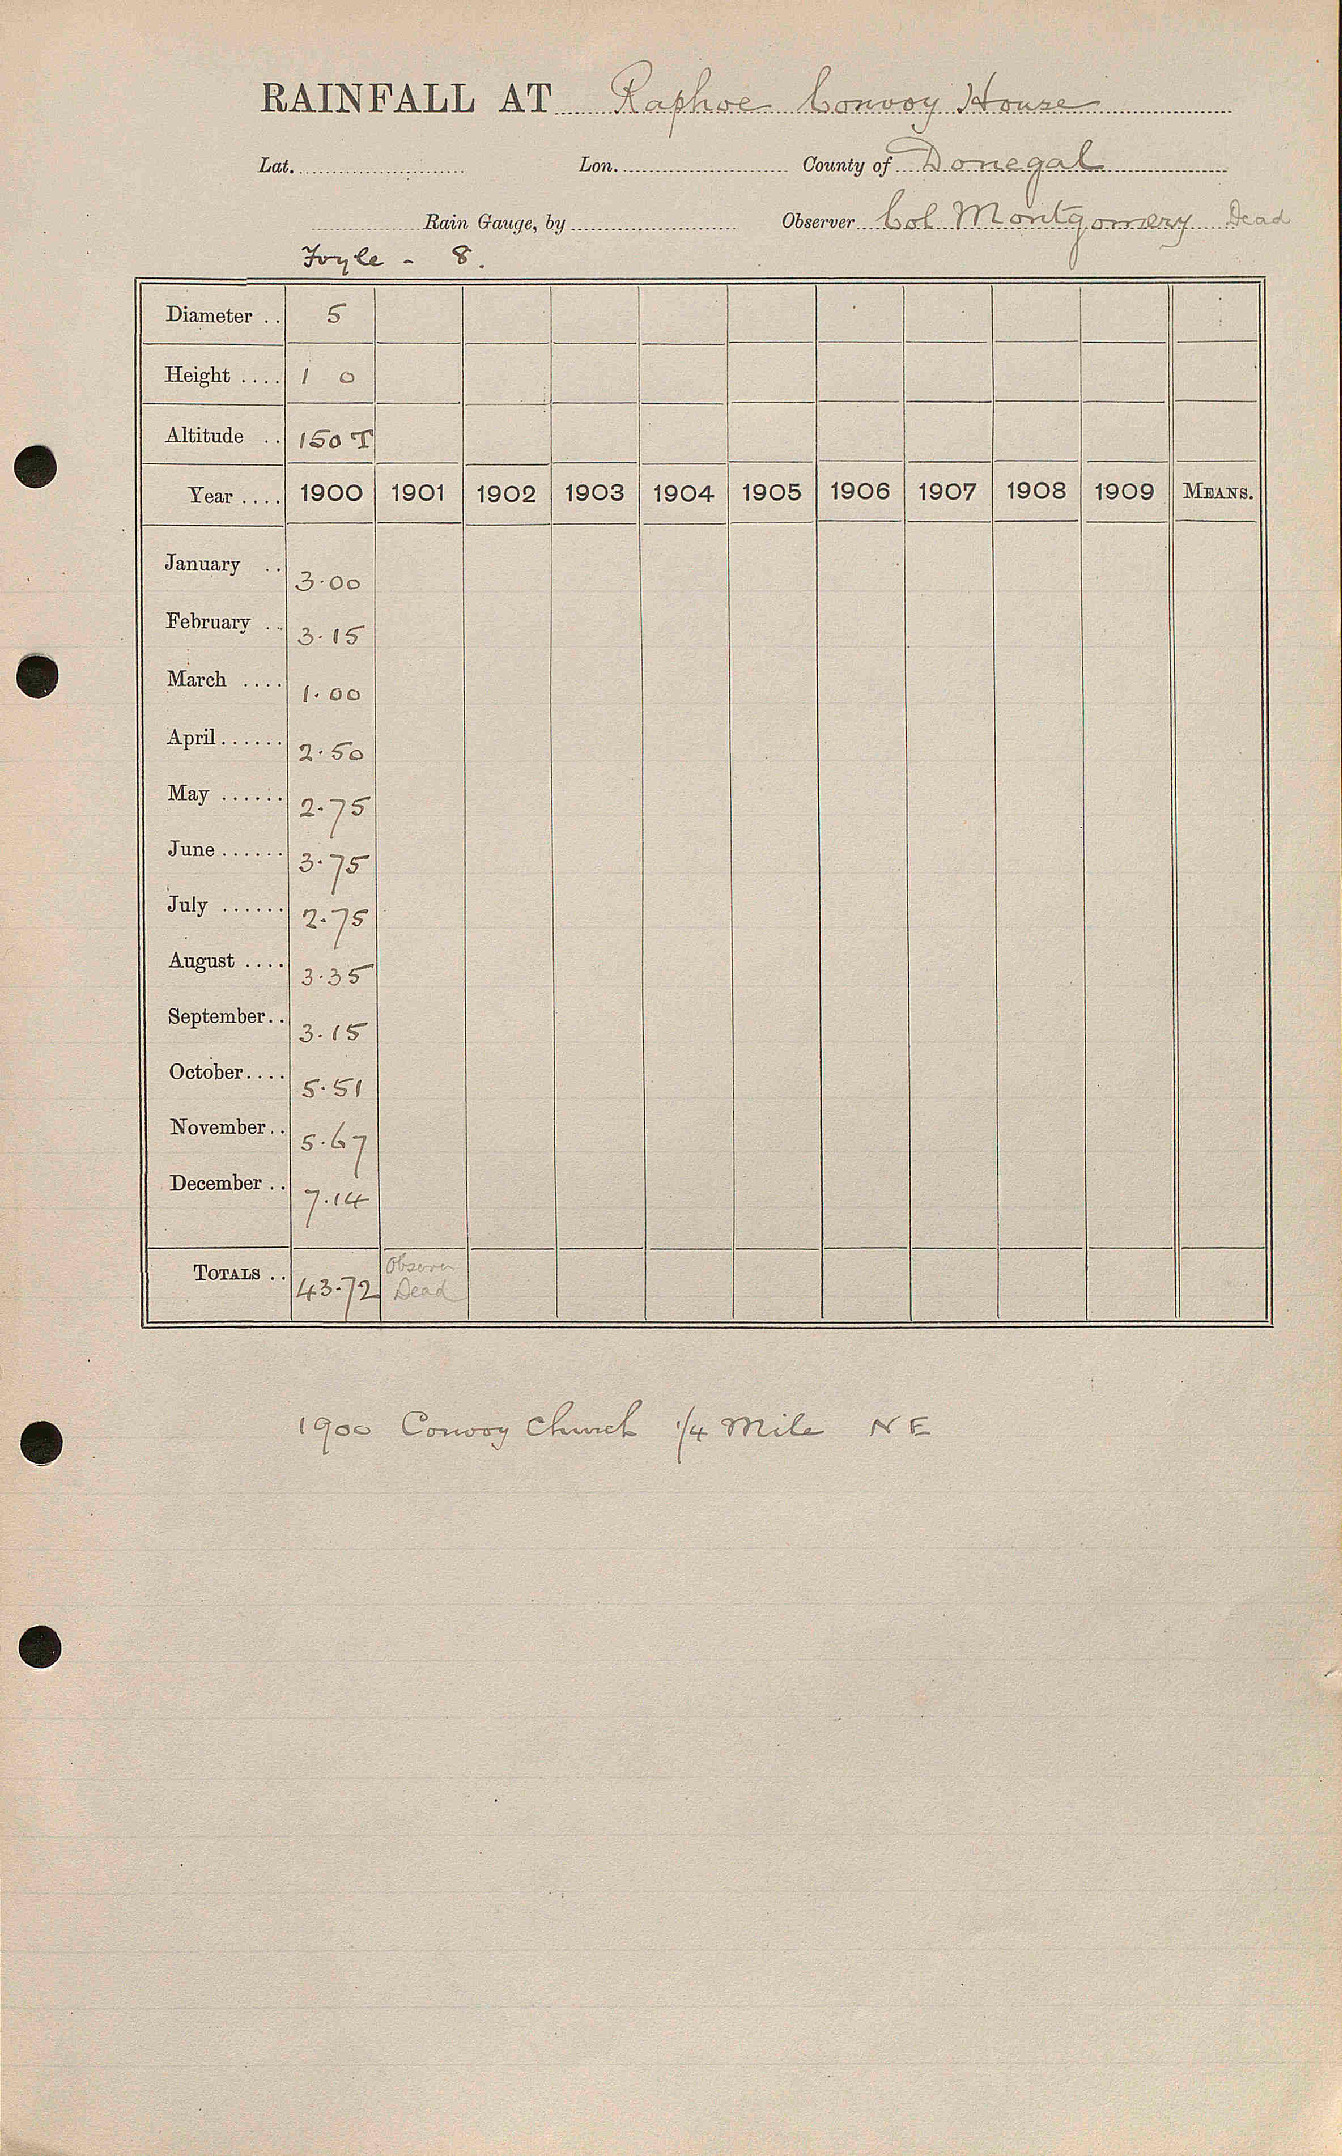 RAINFALL AT Raphoe Convoy House
Lat. Lon. County of Donegal
Rain Gauge, by Observer Col Montgomery Dead
Foyle - 8.
Diameter .. 5
Height .... 1 0
Altitude .. 150 T
Year .... 1900 1901 1902 1903 1904 1905 1906 1907 1908 1909 MEANS.
January .. 3.00
February .. 3.15
March .... 1.00
April ...... 2.50
May ...... 2.75
June ...... 3.75
July ...... 2.75
August .... 3.35
September.. 3.15
October.... 5.51
November.. 5.67
December .. 7.14
TOTALS .. 43.72 Observer Dead
1900 Convoy Church 1/4 Mile NE